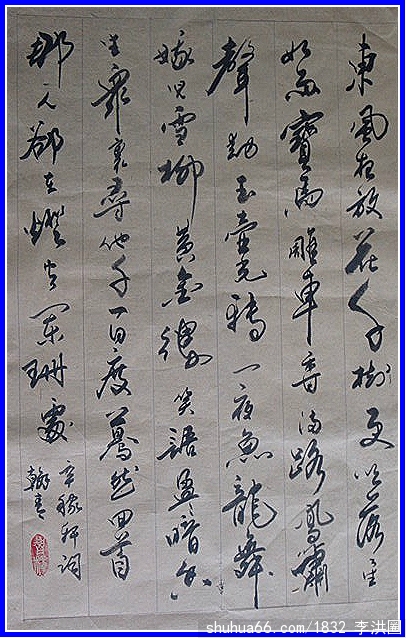 東風夜放花千樹更吹落星
如雨寶馬雕車香滿路鳳簫
聲動玉壺光轉一夜魚龍舞
蛾兒雪柳黃金縷笑語盈盈暗香
去衆裏尋他千百度驀然回首
那人卻在燈火闌珊處
辛稼軒詞
翰青
shuhua66.com/1832 李洪圖